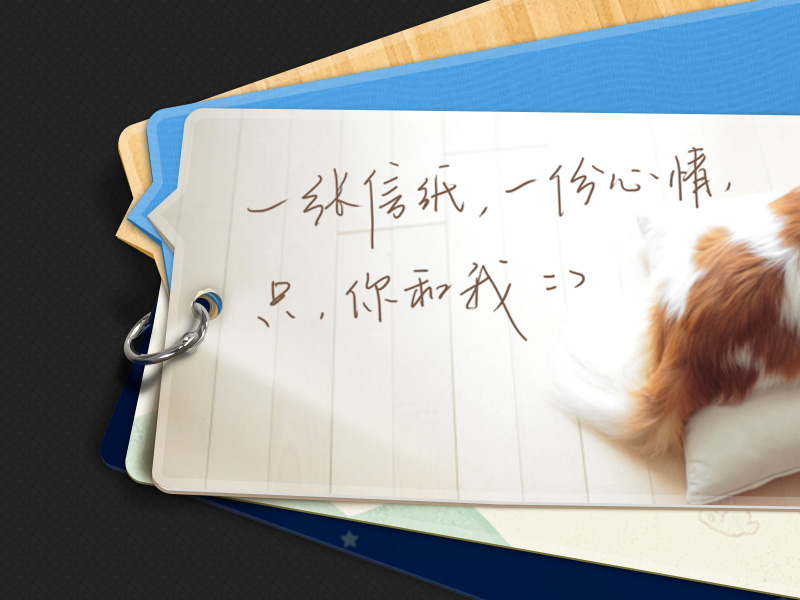 一张信纸，一份心情，
只，你和我 =)